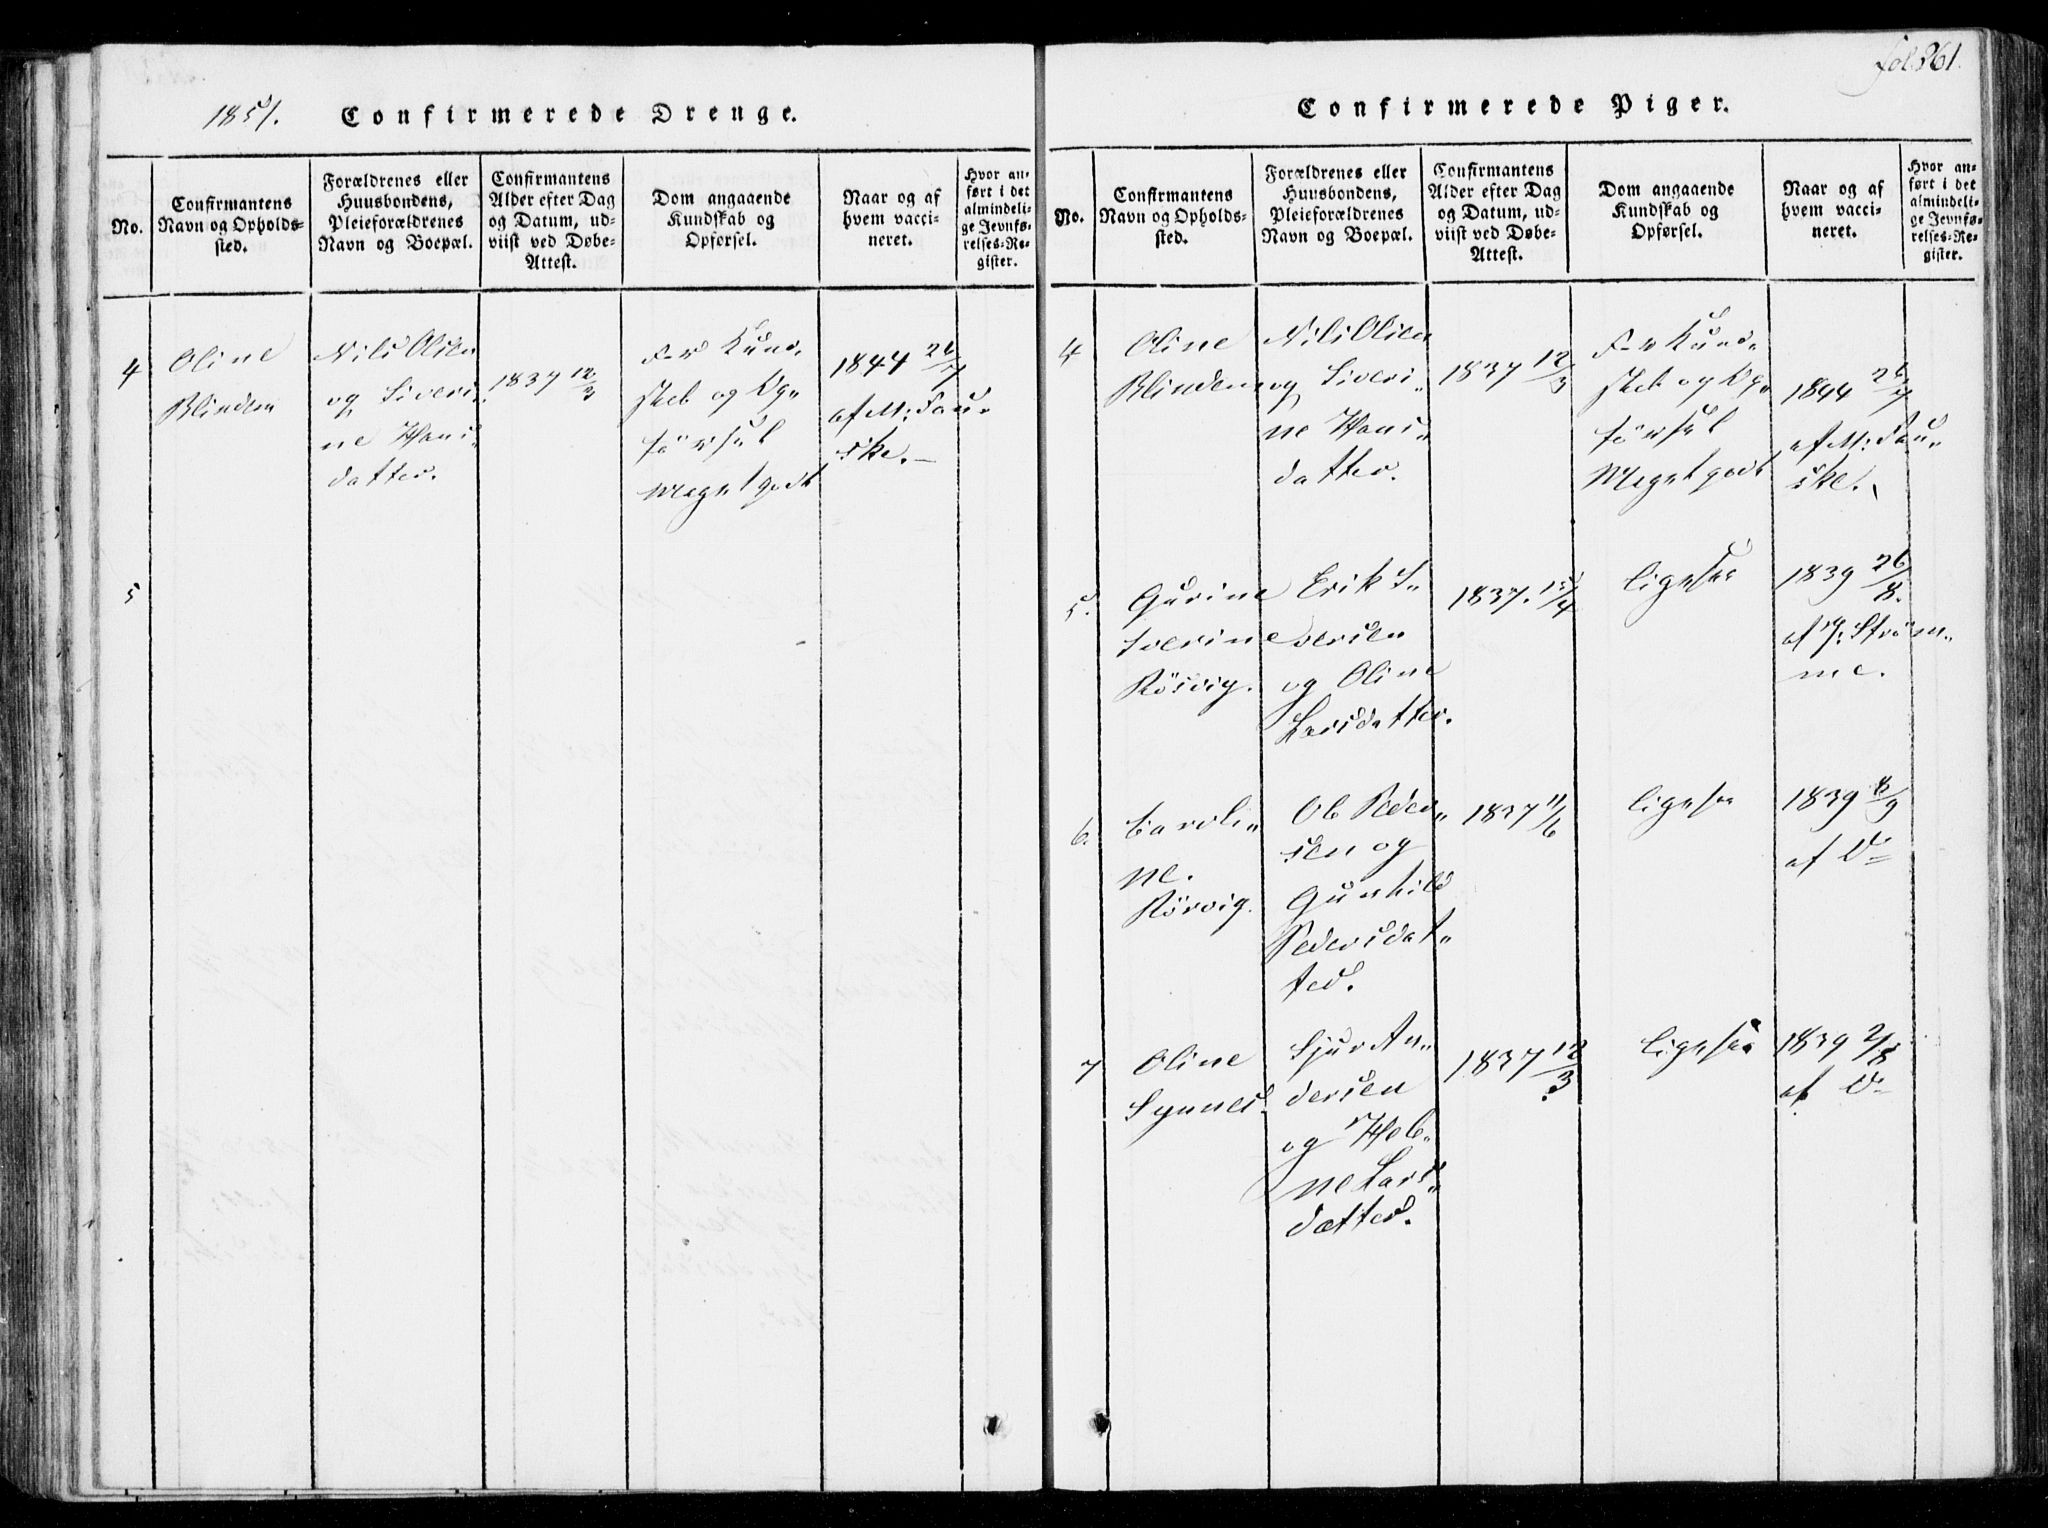 1851. Confirmerede Drenge.
No.
Confirmantens
Navn og Opholds-
sted.
Forældrenes eller
Huusbondens,
Pleieforældrenes
Navn og Boepæl.
Confirmantens
Alder efter Dag
og Datum, ud-
viist ved Døbe-
Attest.
Dom angaaende
Kundskab og
Opførsel.
Naar og af
hvem vacci-
neret.
Hvor an-
ført i det
almindeli-
ge Jevnfø-
relses-Re-
gister.
4
Oline
Blindem
Nils Olsen
og Siveri-
ne Hans-
datter.
1837 12/3
For Kund-
skab og Op-
førsel
Meget godt
1844 26/7
af M: Fau-
ske.
5
fol. 261.
Confirmerede Piger.
No.
Confirmantens
Navn og Opholds-
sted.
Forældrenes eller
Huusbondens,
Pleieforældrenes
Navn og Boepæl.
Confirmantens
Alder efter Dag
og Datum, ud-
viist ved Døbe-
Attest.
Dom angaaende
Kundskab og
Opførsel.
Naar og af
hvem vacci-
neret.
Hvor an-
ført i det
almindeli-
ge Jevnfø-
relses-Re-
gister.
4
Oline
Blindem
Nils Olsen
og Siveri-
ne Hans-
datter.
1837 12/3
For Kund-
skab og Op-
førsel
Meget godt
1844 26/7
af M: Fau-
ske.
5.
Gurine
Iverine
Rösvig.
Erik I-
versen
og Oline
Larsdatter.
1837. 15/4
ligesaa
1839 26/8.
af J: Ström-
me.
6.
Caroli-
ne.
Rörvig.
Ole Peder-
sen og
Gunhild
Pedersdat-
ter.
1837 11/6
ligesaa
1839 8/9
af D=
7
Oline
Synnes.
Sjur An-
dersen
og Hele-
ne Lars-
datter.
1837 12/3
ligesaa
1839 2/8
af D=